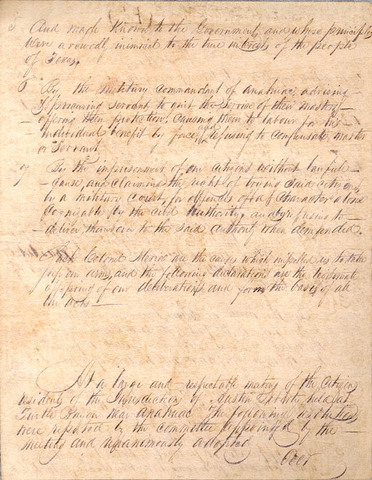 5 And made known to the Government, and whose principles
were avowedly inimical to the true interests of the people
of Texas.
6 By the Military commandant of Anahuac advising
& procuring Servants to quit the Service of their masters
offering them protection, Causing them to labour for his
individual benefit by force, and refusing to compensate master
or Servant
7 By the imprisonment of our citizens without lawful
cause and claiming the right of trying said citizens
by a Military Court, for offences of a Character alone
Cognizable by the civil Authority and by refusing to
deliver them over to the said Authority when demanded.
Colonel are the causes which impelled us to take
up arms, and the following declarations are the legitimate
offspring of our deliberations and form the bases of all
our acts
At a large and respectable meeting of the Citizens
residents of the Jurisdiction of Austin held at
Turtle Bayou near Anahuac The following
were reported by the committee appointed by the
meeting and unanimously adopted